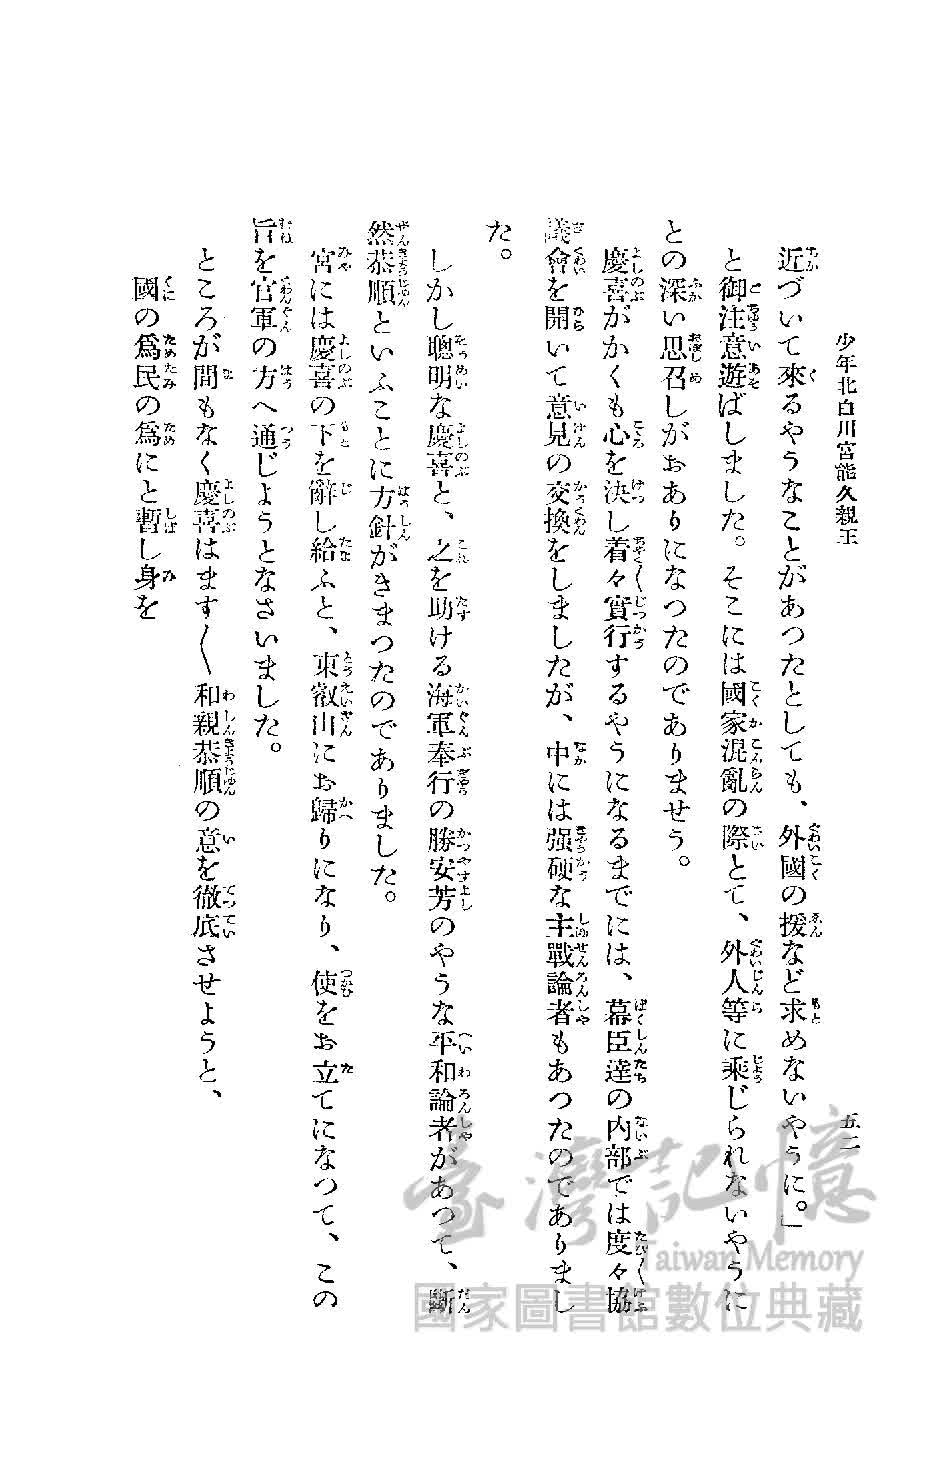 少年北白川宮能久親王
五二
近づいて來るやうなことがあつたとしても、外國の援など求めないやうに。」
と御注意遊ばしました。そこには國家混亂の際とて、外人等に乘じられないやうに
との深い思召しがおありになつたのでありませう。
慶喜がかくも心を決し着々實行するやうになるまでには、幕臣達の內部では度々協
議會を開いて意見の交換をしましたが、中には强硬な主戰論者もあつたのでありまし
た。
しかし聰明な慶喜と、之を助ける海軍奉行の勝安芳のやうな平和論者があつて、斷
然恭順といふことに方針がきまつたのでありました。
宮には慶喜の下を辭し給ふと、東叡山にお歸りになり、使をお立てになつて、この
旨を官軍の方へ通じようとなさいました。
ところが間もなく慶喜はます〱和親恭順の意を徹底させようと、
國の爲民の爲にと暫し身を
臺灣記憶
Taiwan Memory
國家圖書館數位典藏